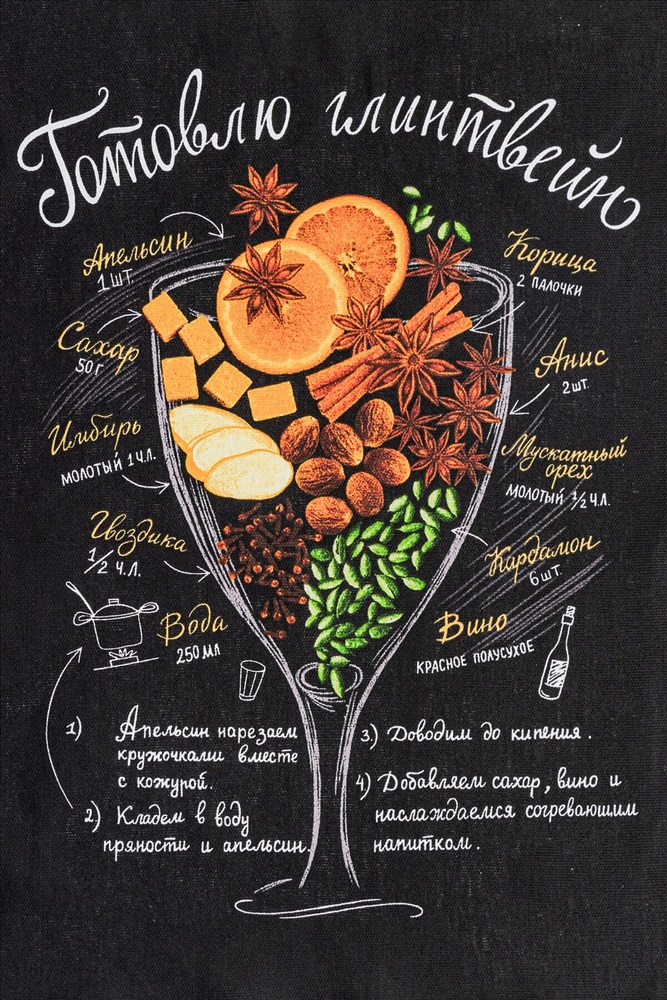 Готовлю глинтвейн
Апельсин
1 ШТ.
Сахар
50 Г
Имбирь
МОЛОТЫЙ 1 Ч.Л.
Гвоздика
1/2 Ч.Л.
Вода
250 МЛ
Корица
2 ПАЛОЧКИ
Анис
2 ШТ.
Мускатный
орех
МОЛОТЫЙ 1/2 Ч.Л.
Кардамон
6 ШТ.
Вино
КРАСНОЕ ПОЛУСУХОЕ
1) Апельсин нарезаем
кружочками вместе
с кожурой.
2) Кладем в воду
пряности и апельсин.
3) Доводим до кипения.
4) Добавляем сахар, вино и
наслаждаемся согревающим
напитком.